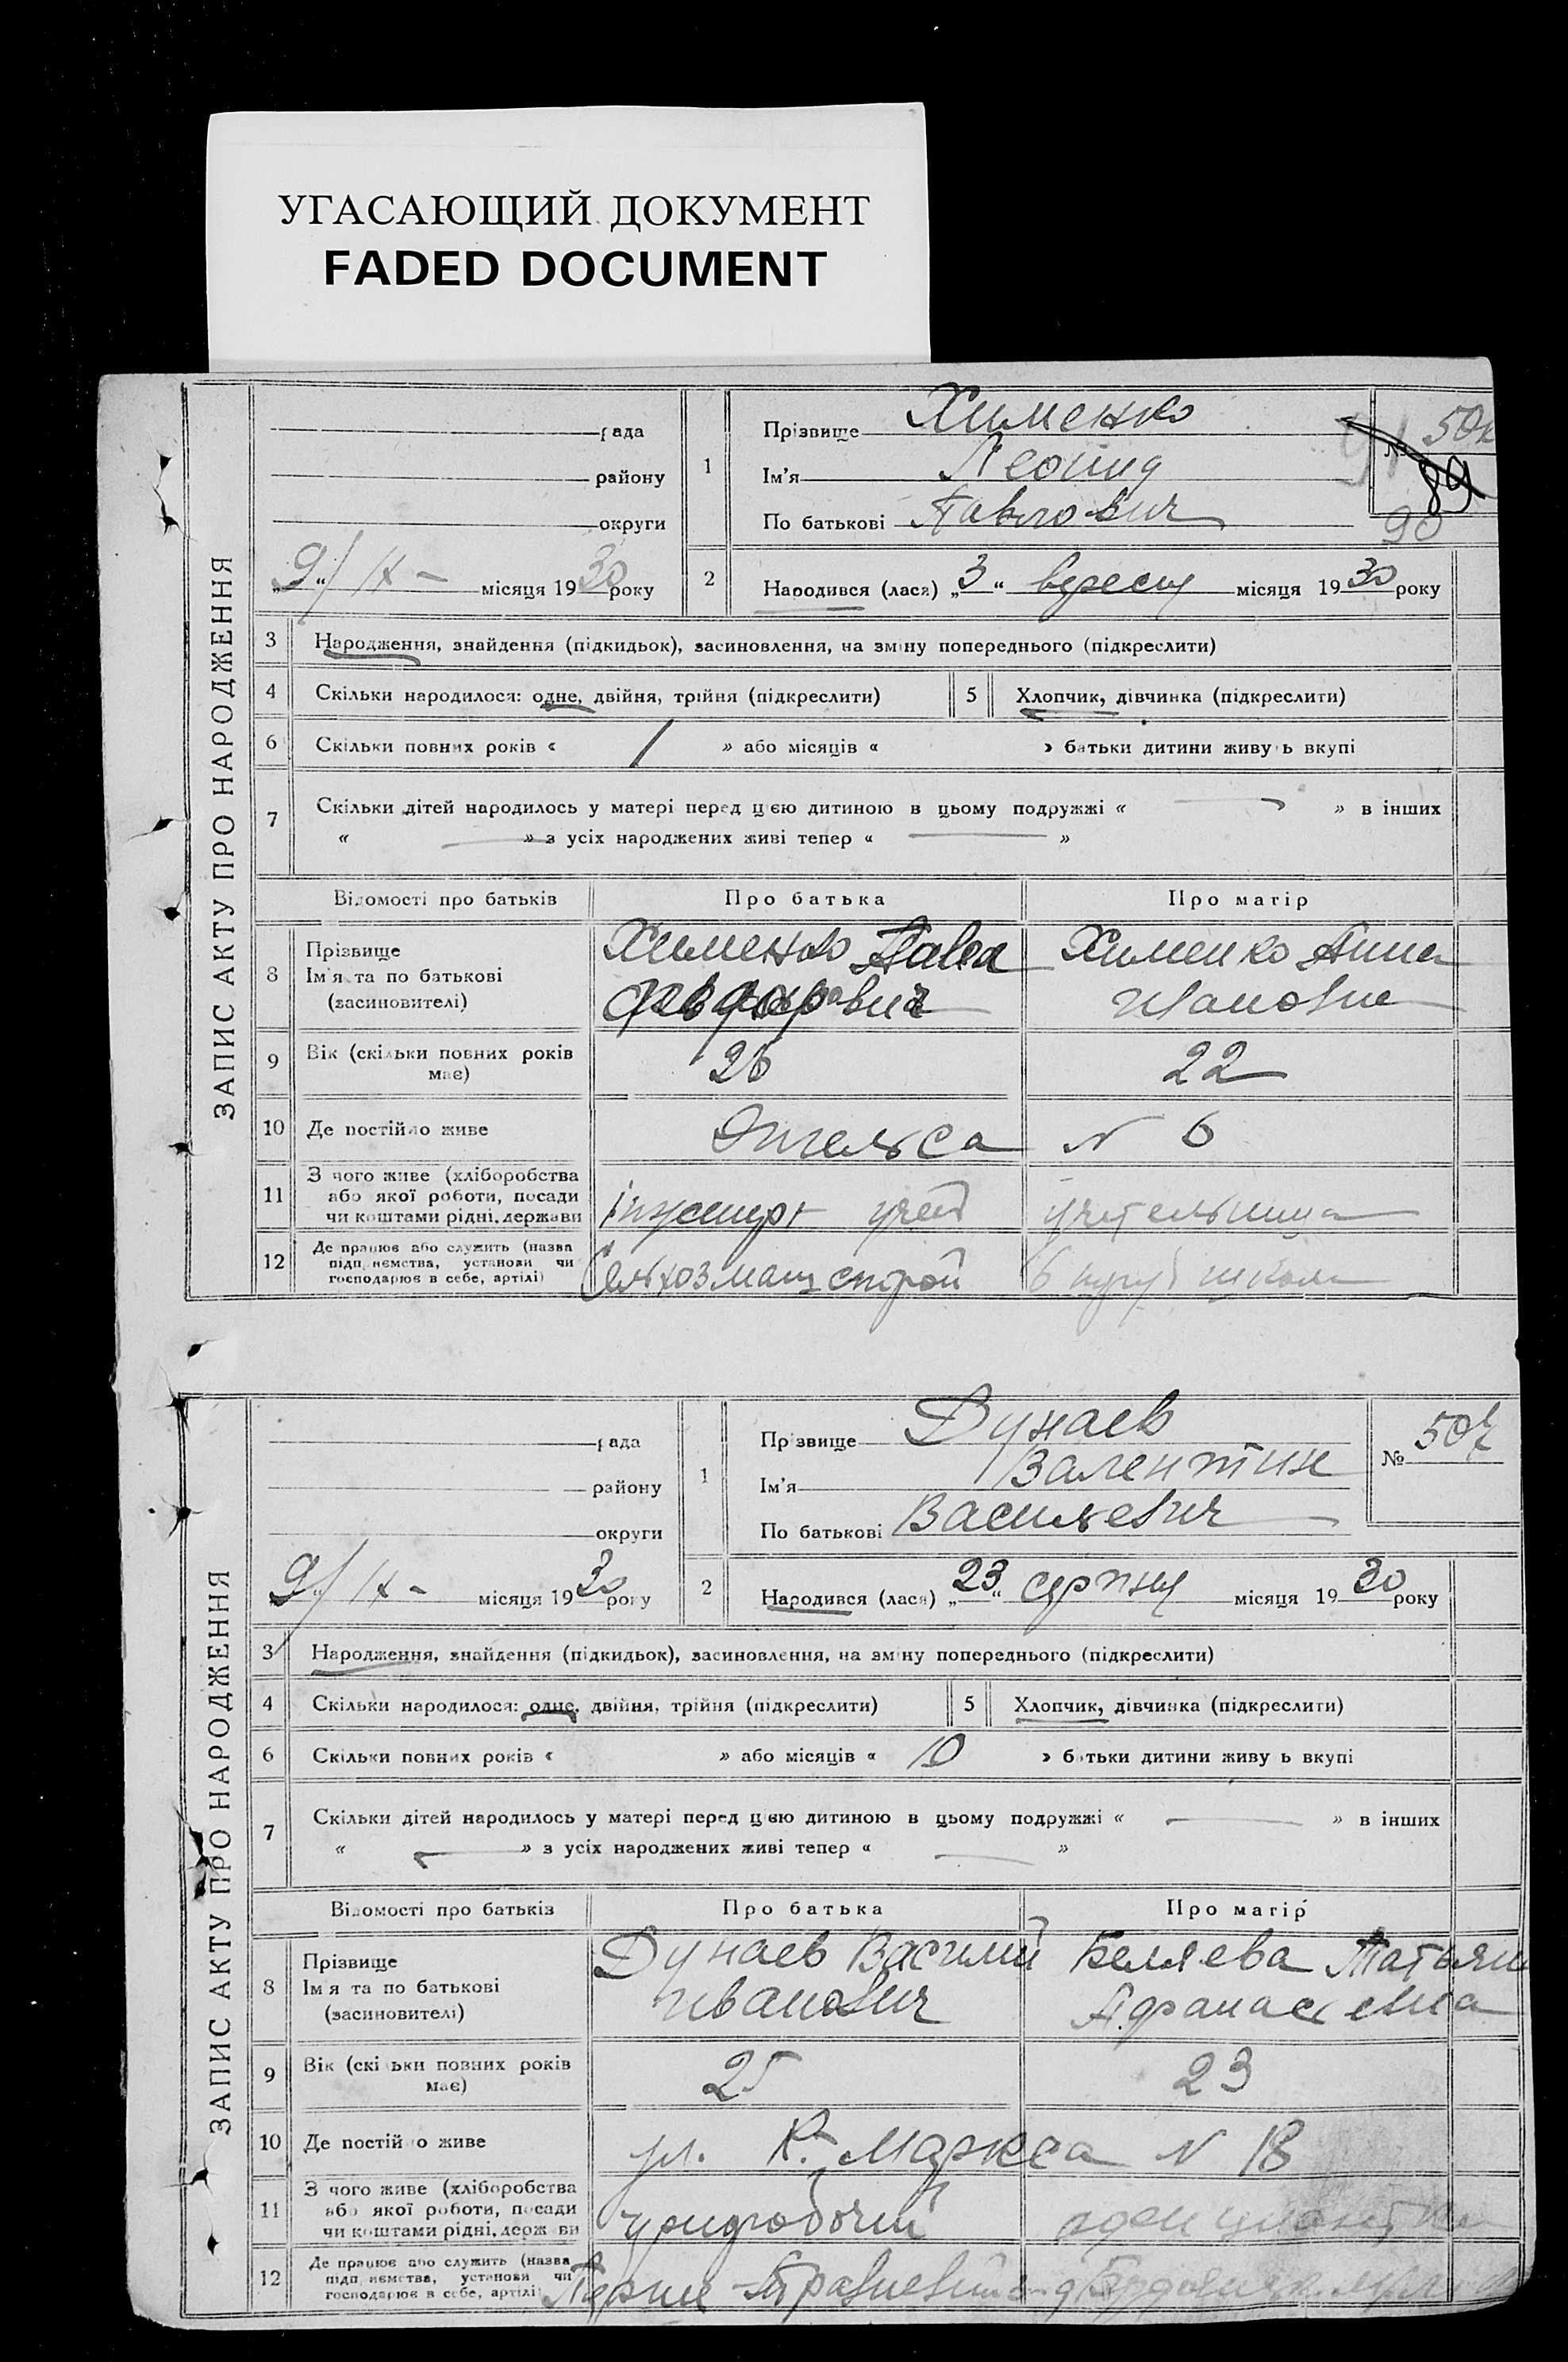 УГАСАЮЩИЙ ДОКУМЕНТ
FADED DOCUMENT
ЗАПИС АКТУ ПРО НАРОДЖЕННЯ
рада
району
округи
9/IX- місяця 1930 року
1
Прізвище Хименко
Ім'я Леонид
По батькові Павлович
№
89
90
2
Народився (лася) „3“ вересня місяця 1930 року
3 Народження, знайдення (підкидьок), засиновлення, на зміну попереднього (підкреслити)
4 Скільки народилося: одне, двійня, трійня (підкреслити)
5 Хлопчик, дівчинка (підкреслити)
6 Скільки повних років « 1 » або місяців « » батьки дитини живуть вкупі
7 Скільки дітей народилось у матері перед цією дитиною в цьому подружжі « — » в інших
« — » з усіх народжених живі тепер « — »
Відомості про батьків Про батька Про матір
8 Прізвище
Ім'я та по батькові
(засиновителі)
Хименко Павел
Федорович
Хименко Анна
Ивановна
9 Вік (скільки повних років
має)
26 22
10 Де постійно живе Энгельса N 6
11 З чого живе (хліборобства
або якої роботи, посади
чи коштами рідні, держави
учительница
12 Де працює або служить (назва
підприємства, установи чи
господарює в себе, артілі)
Сельхозмаш
ЗАПИС АКТУ ПРО НАРОДЖЕННЯ
рада
району
округи
9/IX- місяця 1930 року
1
Прізвище Дунаев
Ім'я Валентин
По батькові Васильевич
№ 507
2
Народився (лася) „23“ серпня місяця 1930 року
3 Народження, знайдення (підкидьок), засиновлення, на зміну попереднього (підкреслити)
4 Скільки народилося: одне, двійня, трійня (підкреслити)
5 Хлопчик, дівчинка (підкреслити)
6 Скільки повних років « » або місяців « 10 » батьки дитини живуть вкупі
7 Скільки дітей народилось у матері перед цією дитиною в цьому подружжі « — » в інших
« — » з усіх народжених живі тепер « — »
Відомості про батьків Про батька Про матір
8 Прізвище
Ім'я та по батькові
(засиновителі)
Дунаев Василий
Иванович
Беляева Татьяна
Афанасьевна
9 Вік (скільки повних років
має)
25 23
10 Де постійно живе ул. К. Маркса N 18
11 З чого живе (хліборобства
або якої роботи, посади
чи коштами рідні, держави
12 Де працює або служить (назва
підприємства, установи чи
господарює в себе, артілі)